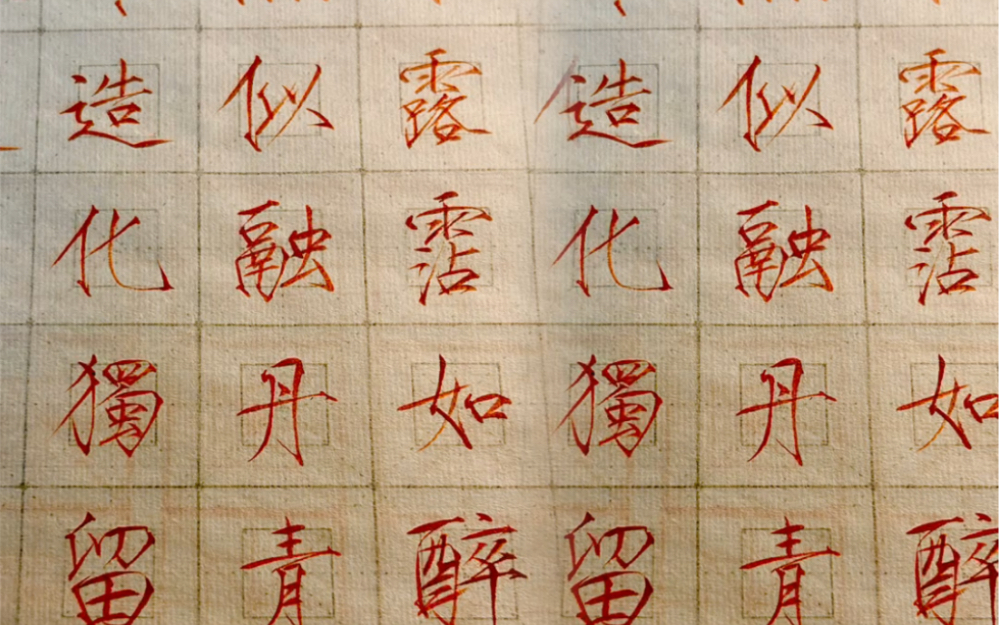 露霑如醉
似融丹青
造化獨留
露霑如醉
似融丹青
造化獨留